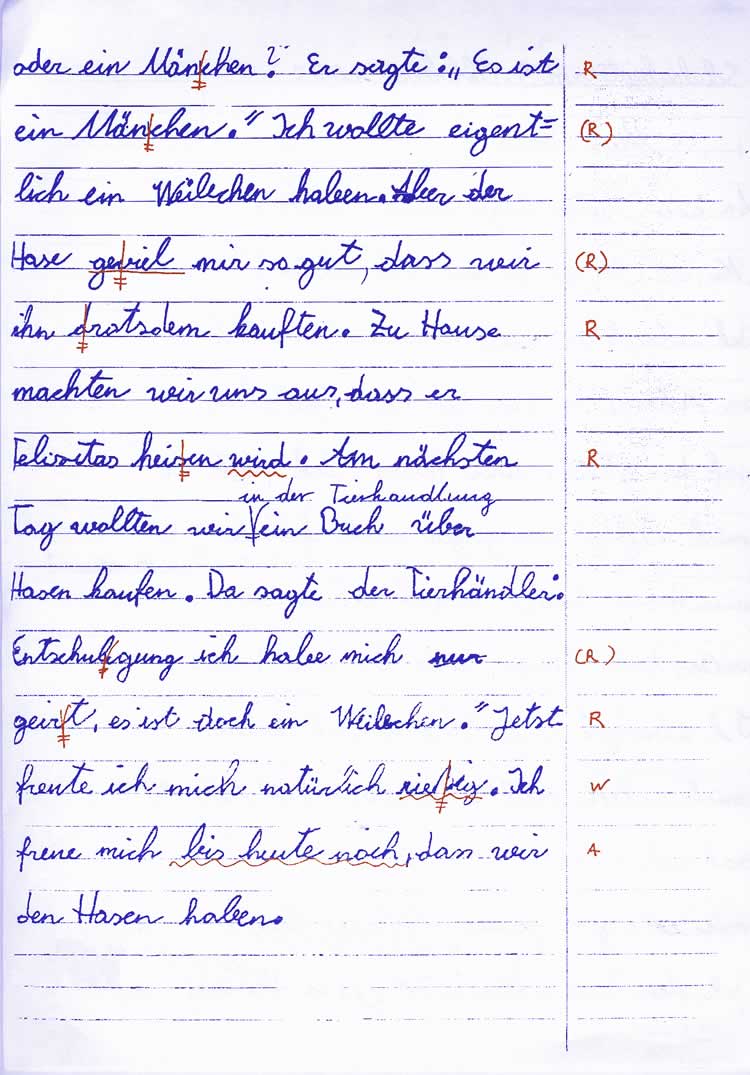 oder ein Mänchen? Er sagte: „Es ist R
ein Mänchen." Ich wollte eigent= (R)
lich ein Weilechen haben. Aber der
Hase geviel mir so gut, dass wir (R)
ihn dratsdem kauften. Zu Hause R
machten wir uns aus, dass er
Felizitas heisen wird. Am nächsten R
in der Tierhandlung
Tag wollten wir ein Buch über
Hasen kaufen. Da sagte der Tierhändler:
Entschuligung ich habe mich nur (R)
geirt, es ist doch ein Weibchen." Jetst R
freute ich mich natürlich W
riesig. Ich
freue mich bis heute noch, dass wir A
den Hasen haben.